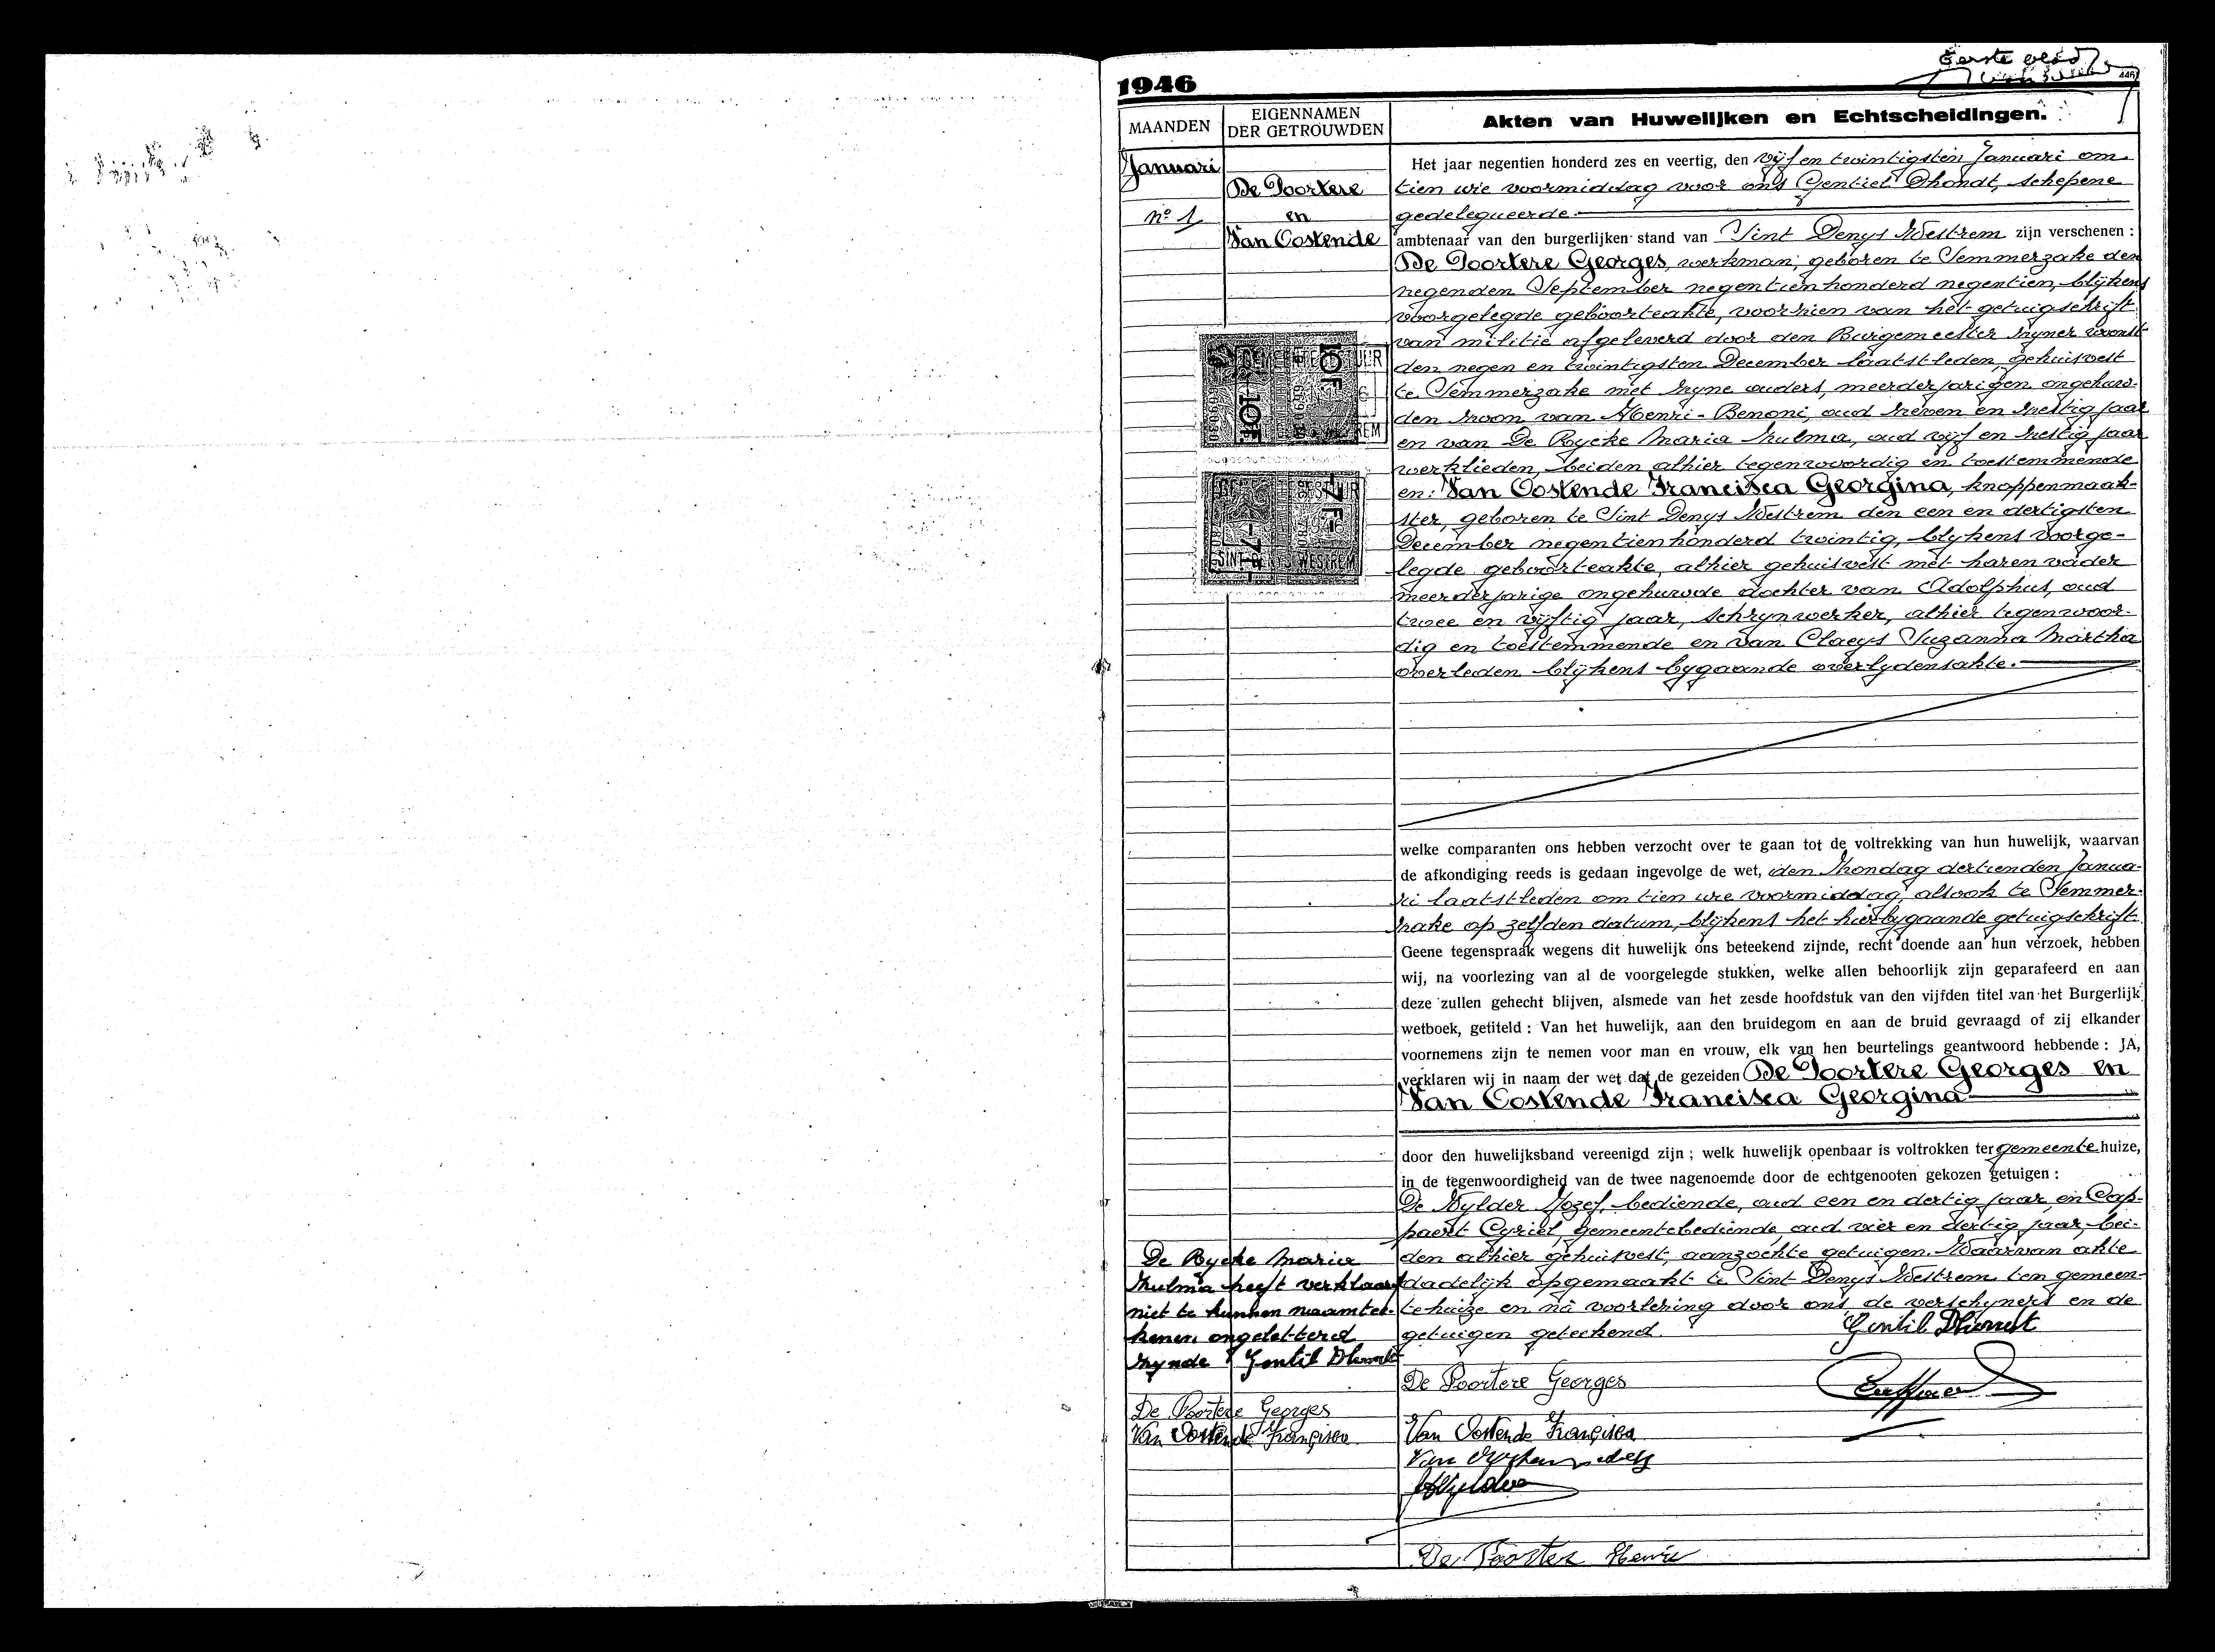 Eerste blad
446
1946
MAANDEN
EIGENNAMEN
DER GETROUWDEN
Akten van Huwelijken en Echtscheidingen.
Januari
De Poortere
nº 1
en
Van Oostende
Het jaar negentien honderd zes en veertig, den vijf en twintigsten Januari om
tien ure voormiddag voor ons Gentiel Dhondt, schepene
gedelegueerde
ambtenaar van den burgerlijken stand van Sint Denys Westrem zijn verschenen :
De Poortere Georges, werkman, geboren te Semmerzake den
negenden September negentienhonderd negentien, blijkens
voorgelegde geboorteakte, voorzien van het getuigschrift
van militie afgeleverd door den Burgemeester zyner woonst
den negen en twintigsten December laatstleden, gehuisvest
te Semmerzake met zyne ouders, meerderjarigen ongehuw-
den zoon van Henri-Benoni, oud zeven en zestig jaar
en van De Rycke Maria Zulma, oud vijf en zestig jaar
werklieden, beiden alhier tegenwoordig en toestemmende
en: Van Oostende Francisca Georgina, knoppenmaak-
ster, geboren te Sint Denys Westrem den een en dertigsten
December negentienhonderd twintig, blykens voorge-
legde geboorteakte, alhier gehuisvest met haren vader
meerderjarige ongehuwde dochter van Adolphus, oud
twee en vijftig jaar, schrynwerker, alhier tegenwoor-
dig en toestemmende en van Claeys Suzanna Martha
overleden blijkens bygaande overlydensakte.
10F.
10F.
7F
7F
SINT DENYS WESTREM
welke comparanten ons hebben verzocht over te gaan tot de voltrekking van hun huwelijk, waarvan
de afkondiging reeds is gedaan ingevolge de wet, den Zondag dertienden Janua-
ri laatstleden om tien ure voormiddag, alsook te Semmer-
zake op zelfden datum, blijkens het hierbygaande getuigschrift.
Geene tegenspraak wegens dit huwelijk ons beteekend zijnde, recht doende aan hun verzoek, hebben
wij, na voorlezing van al de voorgelegde stukken, welke allen behoorlijk zijn geparafeerd en aan
deze zullen gehecht blijven, alsmede van het zesde hoofdstuk van den vijfden titel van het Burgerlijk
wetboek, getiteld : Van het huwelijk, aan den bruidegom en aan de bruid gevraagd of zij elkander
voornemens zijn te nemen voor man en vrouw, elk van hen beurtelings geantwoord hebbende : JA,
verklaren wij in naam der wet dat de gezeiden De Poortere Georges en
Van Oostende Francisca Georgina
door den huwelijksband vereenigd zijn ; welk huwelijk openbaar is voltrokken ter gemeente huize,
in de tegenwoordigheid van de twee nagenoemde door de echtgenooten gekozen getuigen :
De Wylder Jozef, bediende, oud een en dertig jaar, en Cap-
paert Cyriel, gemeentebediende, oud vier en dertig jaar, bei-
den alhier gehuisvest, aanzochte getuigen. Waarvan akte
dadelijk opgemaakt te Sint Denys Westrem ten gemeen-
tehuize en na voorlezing door ons, de verschyners en de
getuigen geteekend.
De Rycke Maria
Zulma heeft verklaard
niet te kunnen naamtee-
kenen ongeletterd
zynde
Gentil Dhondt
De Poortere Georges
Van Oostende Françisca
Gentil Dhondt
De Poortere Georges
Cappaert
Van Oostende Françisca
De Poorter Henri